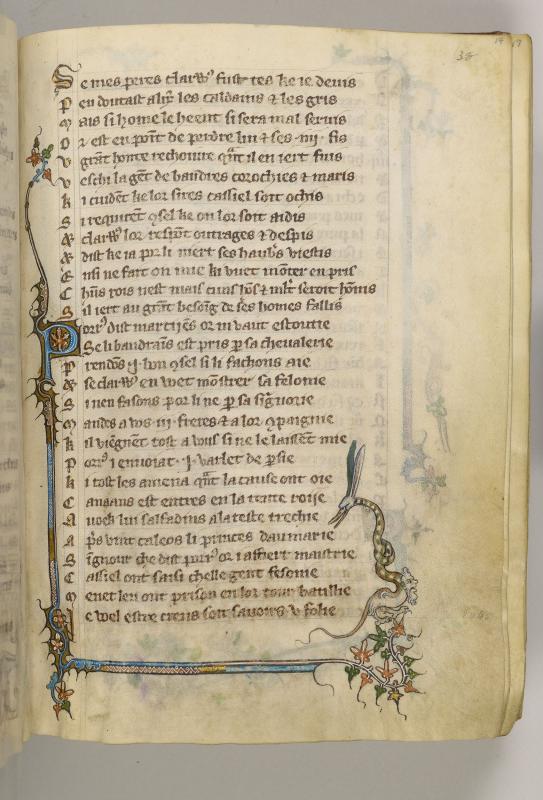 38
Se mes peres clarus fust tes ke ie devis
Peu doutast a les caldains & les gris
Mais si home le heent si sera mal servis
est en point de perdre lui & ses .iiii. fis
grant honte rechoivre quant il en iert fuis
la gent de baudres corochies & maris
Ki cuident ke lor sires cassiel soit ochis
Si requirent ke on lor soit aidis
& clarus lor respont outrages & despis
& dist ke ia por li niert ses haubers viestis
Ensi ne fait on mie ki vuet monter en pris
rois nest mais cuivers & mlt seroit honnis
Sil iert au grant besoing de ses homes fallis
Porrus dist or m vaut estoutie
Se li baudrains est pris par sa chevalerie
Prendons .ii. bon gsel si li fachons aie
& se clarus en vuet monstrer sa felonie
Si nen fasons por li ne par sa signorie
Mandes a vos .iii. freres & a lor compaignie
Kil viegnent tost a vous si ne le laissent mie
Porrus i envoiat .i. varlet de persie
Ki tost les amena quant la cause ont oie
Canaans est entres en la tente roije
li salfadins a la teste trechie
Apres vint caleos li princes daumarie
Signour che dist porrus or i affiert maistrie
Cassiel ont saisi chelle gent fesonie
Menet len ont prison en lor tour batislie
e wel estre creus soit savoirs u folie